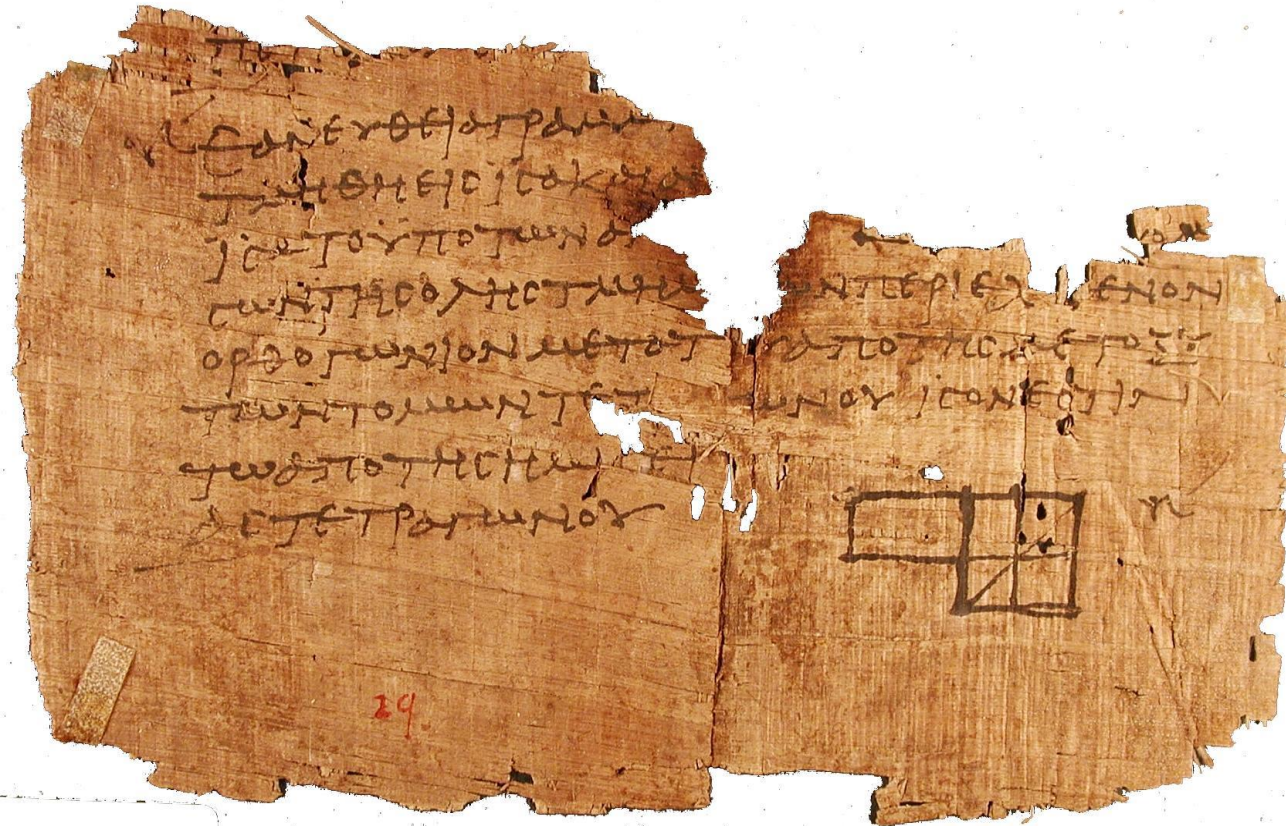 ΕΑΝ ΕΥΘΕΙΑ ΓΡΑΜΜ
ΤΜΗΘΗ ΕΙϹ ΙϹΑ ΚΑΙ ΑΝ
ΙϹΑ ΤΟ ΥΠΟ ΤΩΝ ΑΝ ΟΝ
ΤΩΝ ΤΗϹ ΟΛΗϹ ΤΜΗΜ ΩΝ ΠΕΡΙΕΧ ΕΝΟΝ
ΟΡΘΟΓΩΝΙΟΝ ΜΕΤΑ ΤΟΥ ΑΠΟ ΤΗϹ ΜΕΤΟΞΥ
ΤΩΝ ΤΟΜΩΝ ΤΕΤ ΩΝΟΥ ΙϹΟΝ ΕϹΤΙΝ
ΤΩ ΑΠΟ ΤΗϹ ΗΜΙϹΕΙ
ΑϹ ΤΕΤΡΑΓΩΝΟΥ
29